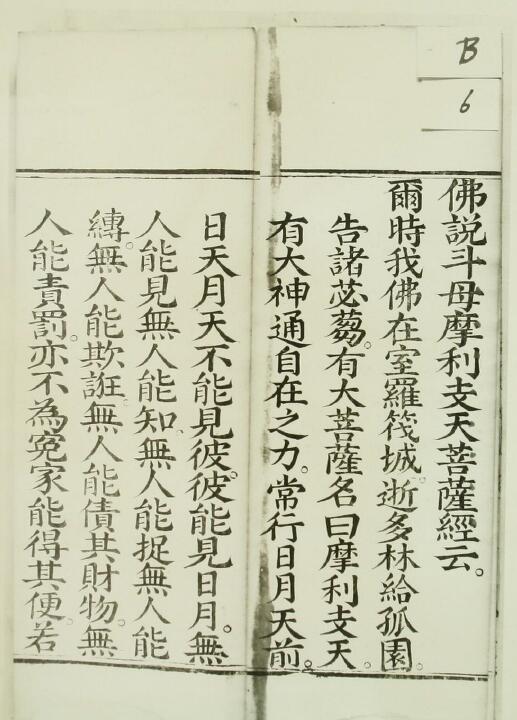 B
6
佛說斗母摩利支天菩薩經云。
爾時我佛在室羅筏城。逝多林給孤園。
告諸苾蒭。有大菩薩名曰摩利支天。
有大神通自在之力。常行日月天前。
日天月天不能見彼。彼能見日月。無
人能見無人能知。無人能捉無人能
縛。無人能欺誑。無人能債其財物。無
人能責罰。亦不為冤家能得其便。若